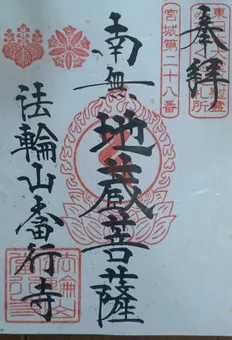 奉拝
宮城第二十八番
南無地蔵菩薩
法輪山行寺